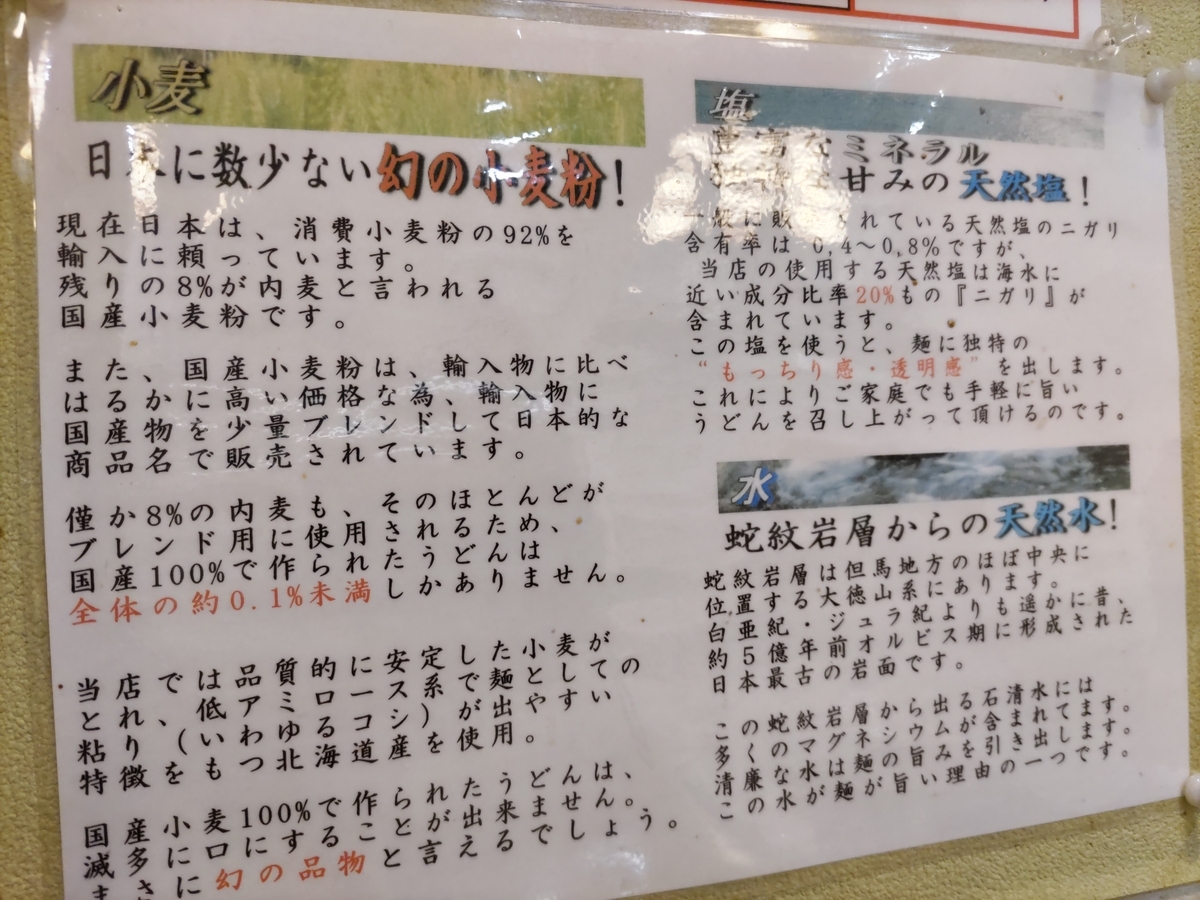 小麦
日本に数少ない幻の小麦粉!
現在日本は、消費小麦粉の92%を
輸入に頼っています。
残りの8%が内麦と言われる
国産小麦粉です。
また、国産小麦粉は、輸入物に比べ
はるかに高い価格な為、輸入物に
国産物を少量ブレンドして日本的な
商品名で販売されています。
僅か8%の内麦も、そのほとんどが
ブレンド用に使用されるため、
国産100%で作られたうどんは
全体の約0.1%未満しかありません。
当店では品質的に安定した小麦が
とれ、低アミロース系で麺としての
粘り(いわゆるコシ)が出やすい
特徴をもつ北海道産を使用。
国産小麦100%で作られたうどんは、
滅多に口にすることが出来ません。
まさに幻の品物と言えるでしょう。
塩
豊富なミネラル
甘みの天然塩!
一般に販されている天然塩のニガリ
含有率は0,4～0,8%ですが、
当店の使用する天然塩は海水に
近い成分比率20%もの『ニガリ』が
含まれています。
この塩を使うと、麺に独特の
“もっちり感・透明感”を出します。
これによりご家庭でも手軽に旨い
うどんを召し上がって頂けるのです。
水
蛇紋岩層からの天然水!
蛇紋岩層は但馬地方のほぼ中央に
位置する大徳山系にあります。
白亜紀・ジュラ紀よりも遥かに昔、
約5億年前オルビス期に形成された
日本最古の岩面です。
この蛇紋岩層から出る石清水には
多くのマグネシウムが含まれてます。
清廉な水は麺の旨みを引き出します。
この水が麺が旨い理由の一つです。